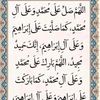 اللَّهُمَّ صَلِّ عَلَى مُحَمَّدٍ وَعَلَى آلِ
مُحَمَّدٍ كَمَا صَلَّيْتَ عَلَى إِبْرَاهِيمَ
وَعَلَى آلِ إِبْرَاهِيمَ إِنَّكَ حَمِيدٌ
مَجِيدٌ اللَّهُمَّ بَارِكْ عَلَى مُحَمَّدٍ
وَعَلَى آلِ مُحَمَّدٍ كَمَا بَارَكْتَ
عَلَى إِبْرَاهِيمَ وَعَلَى آلِ